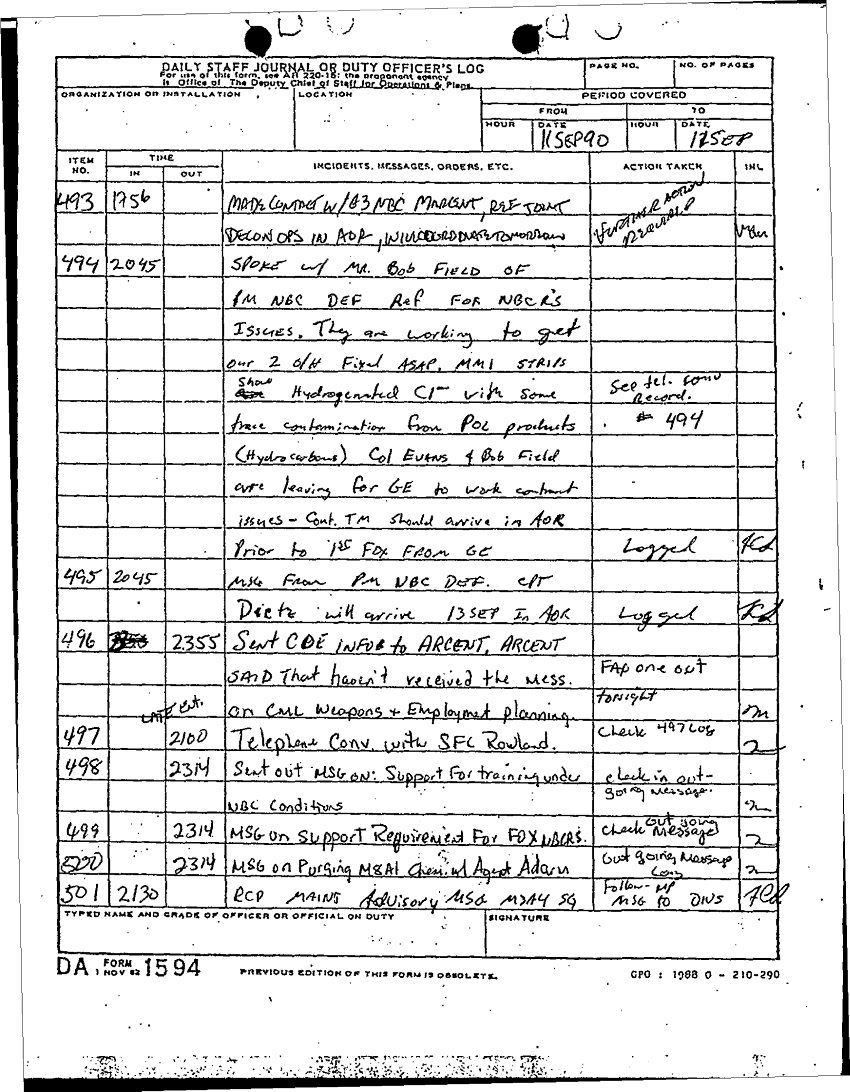 DAILY STAFF JOURNAL OR DUTY OFFICER'S LOG
For use of this form, see AR 220-15; the proponent agency
is Office of The Deputy Chief of Staff for Operations & Plans.
PAGE NO.
NO. OF PAGES
ORGANIZATION OR INSTALLATION
LOCATION
PERIOD COVERED
FROM
TO
HOUR
DATE
HOUR
DATE
11SEP90
12SEP
ITEM NO.
TIME
IN
OUT
INCIDENTS, MESSAGES, ORDERS, ETC.
ACTION TAKEN
INL
493 1756 MADE CONTACT W/G3 NBC MARCENT, REF JOINT
DECON OPS IN AOR, WILL COORDINATE TOMORROW
FURTHER ACTION REQUIRED
494 2045 SPOKE w/ MR. Bob FIELD OF
PM NBC DEF Ref FOR NBCR'S
ISSUES. They are working to get
our 2 O/H Fixed ASAP. MM1 STRIPS
Show Hydrogenated Cl— with some
See tel. conv Record.
trace contamination from POL products
# 494
(Hydrocarbons) Col EVANS & Bob Field
are leaving for GE to work contract
issues - Cont. TM should arrive in AOR
Prior to 1st FOX FROM GE Logged
495 2045 MSG From PM NBC DEF. CPT
Dietz will arrive 13SEP In AOR Logged
496 2355 Sent CDE INFOR to ARCENT, ARCENT
SAID That haven't received the mess.
FAX one out
tonight
LATE Ent.
on CML Weapons + Employment planning.
497 2100 Telephone Conv. with SFC Rowland. Check 497 LOG
498 2314 Sent out MSG ON: Support For training under check in out-
going message.
NBC Conditions
499 2314 MSG on Support Requirement For FOX NBCRS. Check out going Message
500 2314 MSG on Purging M8A1 Chemical Agent Alarm Out going Message Log
501 2130 RCD MAINT Advisory MSG Follow-up
MSG to DIVS
TYPED NAME AND GRADE OF OFFICER OR OFFICIAL ON DUTY
SIGNATURE
DA FORM 1 NOV 62 1594
PREVIOUS EDITION OF THIS FORM IS OBSOLETE.
GPO : 1988 O - 210-290